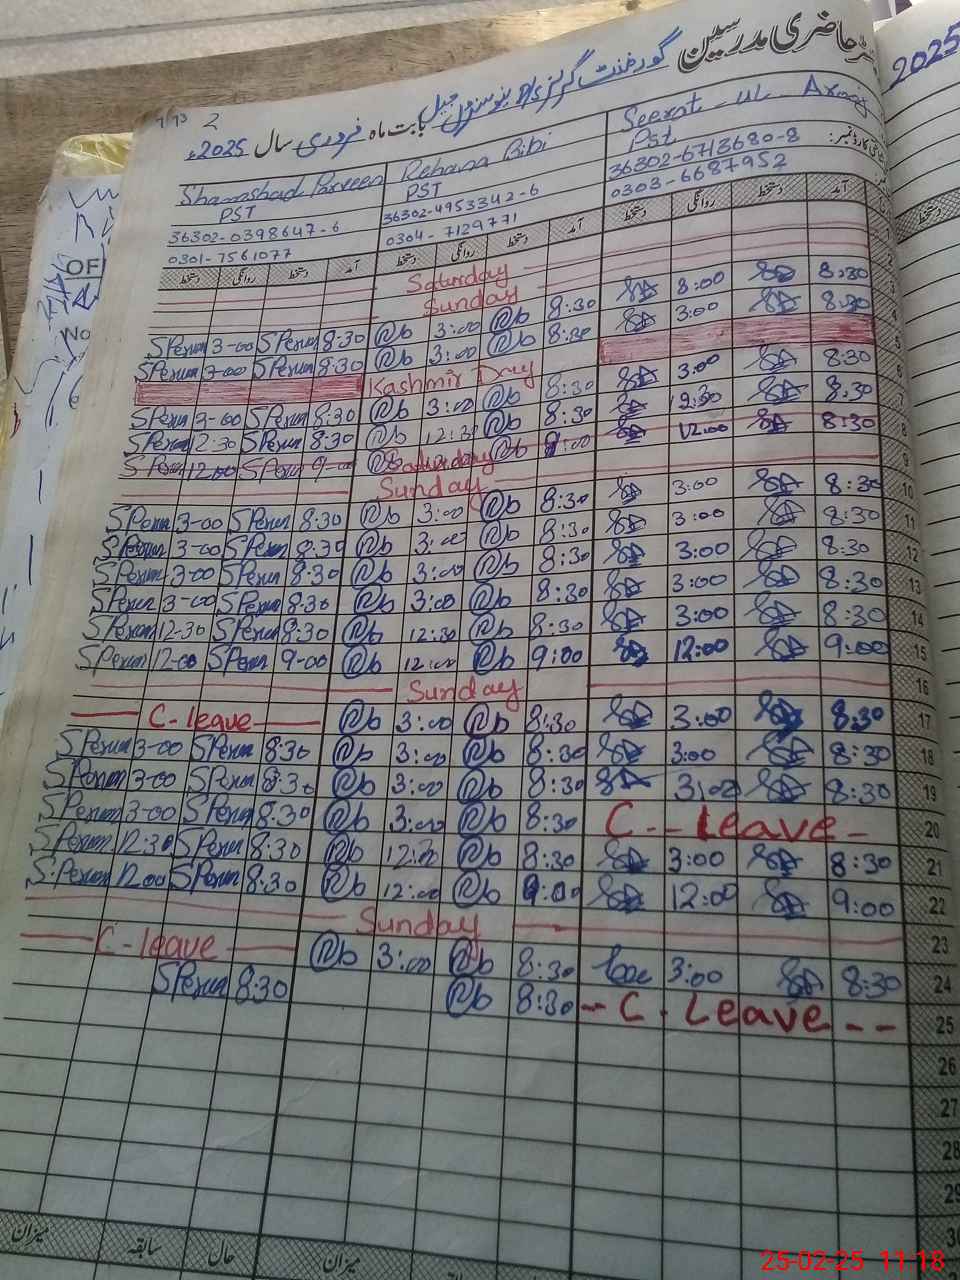 رجسٹر حاضری مدرسین
2025
گورنمنٹ گرلز
بابت ماہ فروری سال 2025ء
2
Shamshad Parveen Rehana Bibi Seerat - ul - 
PST PST Pst
36302-0398647-6 36302-4953342-6 36302-6713680-8
0301-7561077 0304-7129771 0303-6687952
دستخط روانگی دستخط آمد دستخط روانگی دستخط آمد دستخط روانگی دستخط آمد
Saturday
Sunday
SPerun 3-00 SPerun 8:30 Rb 3:00 Rb 8:30 3:00 8:30 3
SPerun 3-00 SPerun 8:30 Rb 3:00 Rb 8:30 3:00 8:30 4
Kashmir Day 5
SPerun 3-00 SPerun 8:30 Rb 3:00 Rb 8:30 3:00 8:30 6
SPerun 12:30 SPerun 8:30 Rb 12:30 Rb 8:30 12:30 8:30 7
SPerun 12:00 SPerun 9-00 Rb Saturday Rb 9:00 12:00 8:30 8
Sunday 9
SPerun 3-00 SPerun 8:30 Rb 3:00 Rb 8:30 3:00 8:30 10
SPerun 3-00 SPerun 8:30 Rb 3:00 Rb 8:30 3:00 8:30 11
SPerun 3-00 SPerun 8:30 Rb 3:00 Rb 8:30 3:00 8:30 12
SPerun 3-00 SPerun 8:30 Rb 3:00 Rb 8:30 3:00 8:30 13
SPerun 12-30 SPerun 8:30 Rb 12:30 Rb 8:30 3:00 8:30 14
SPerun 12-00 SPerun 9-00 Rb 12:00 Rb 9:00 12:00 9:00 15
Sunday 16
C-leave Rb 3:00 Rb 8:30 3:00 8:30 17
SPerun 3-00 SPerun 8:30 Rb 3:00 Rb 8:30 3:00 8:30 18
SPerun 3-00 SPerun 8:30 Rb 3:00 Rb 8:30 3:00 8:30 19
SPerun 3-00 SPerun 8:30 Rb 3:00 Rb 8:30 C--Leave- 20
SPerun 12:30 SPerun 8:30 Rb Rb 8:30 3:00 8:30 21
S.Perun 12.00 SPerun 8:30 Rb 12:00 Rb 9:00 12:00 9:00 22
Sunday 23
C-leave Rb 3:00 Rb 8:30 3:00 8:30 24
SPerun 8:30 Rb 8:30 -- C. Leave -- 25
26
27
28
29
30
میزان سابقہ حال میزان
OFF
No
25-02-25 11:18